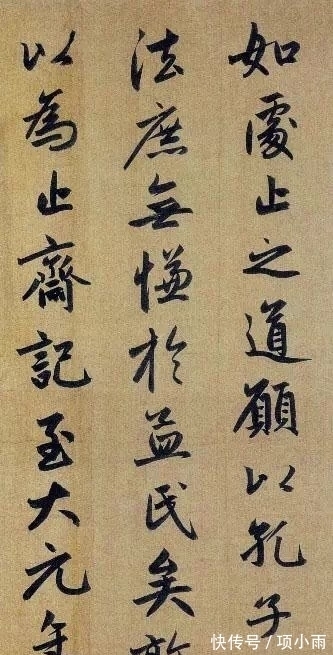 如處止之道願以孔子
法庶無慊於益民矣敢
以為止齋記至大元年
快传号/项小雨